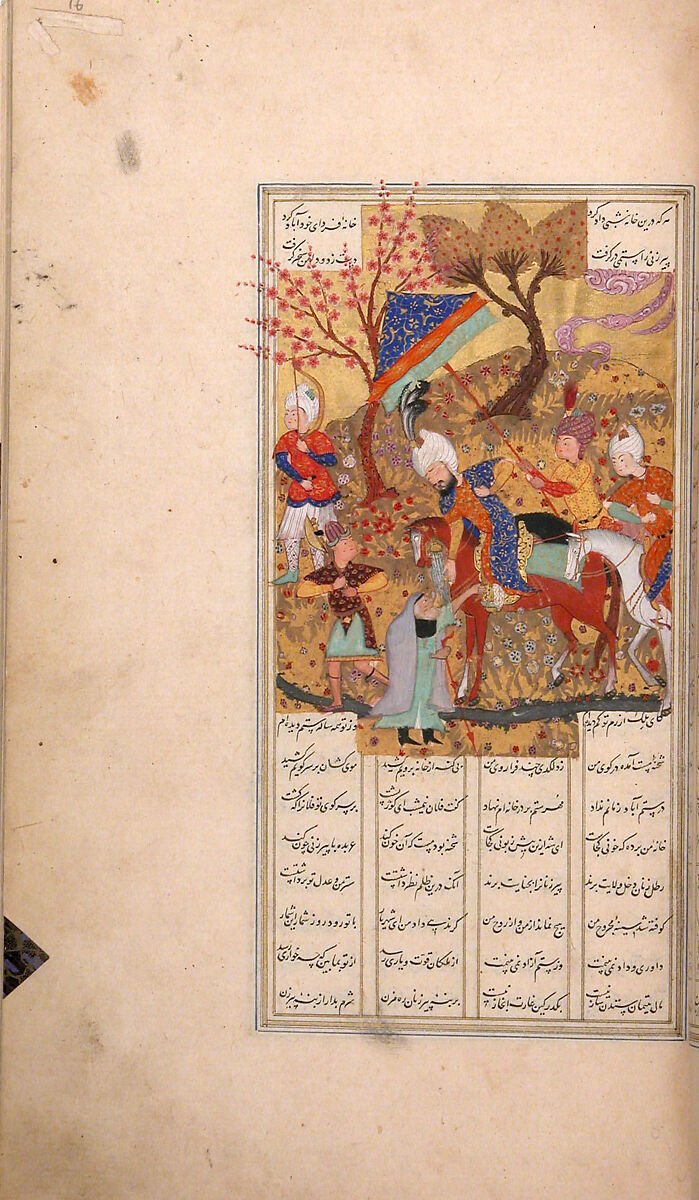 هر که درین خانه شبی داد کرد خانه فردای خود آباد کرد
پیرزنی را ستمی درگرفت دست زد و دامن سنجر گرفت
کای ملک آزرم تو کم دیده‌ام وز تو همه ساله ستم دیده‌ام
شحنه مست آمده در کوی من زد لگدی چند فرا روی من بی‌گنه از خانه برویم کشید موی کشان بر سر کویم کشید
در ستم آباد زبانم نداد مهر ستم بر در خانم نهاد گفت فلان نیمشب ای کوژپشت بر سر کوی تو فلانرا که کشت
خانه من برده که خونی کجاست ای شه ازین بیش زبونی کجاست شحنه بود مست که آن خون کند عربده با پیرزنی چون کند
رطل زنان دخل ولایت برند پیرزنانرا بجنایت برند آنک درین ظلم نظر داشتست ستر من و عدل تو برداشتست
کوفته شد سینه مجروح من هیچ نماند از من و از روح من گر ندهی داد من ای شهریار با تو رود روز شمار این شمار
داوری و داد نمی‌بینمت وز ستم آزاد نمی‌بینمت از ملکان قوت و یاری رسد از تو بما بین که چه خواری رسد
مال یتیمان ستدن ساز نیست بگذر کین غارت ابخاز نیست بر بنه پیرزنان ره مزن شرم بدار از بنه پیرزن